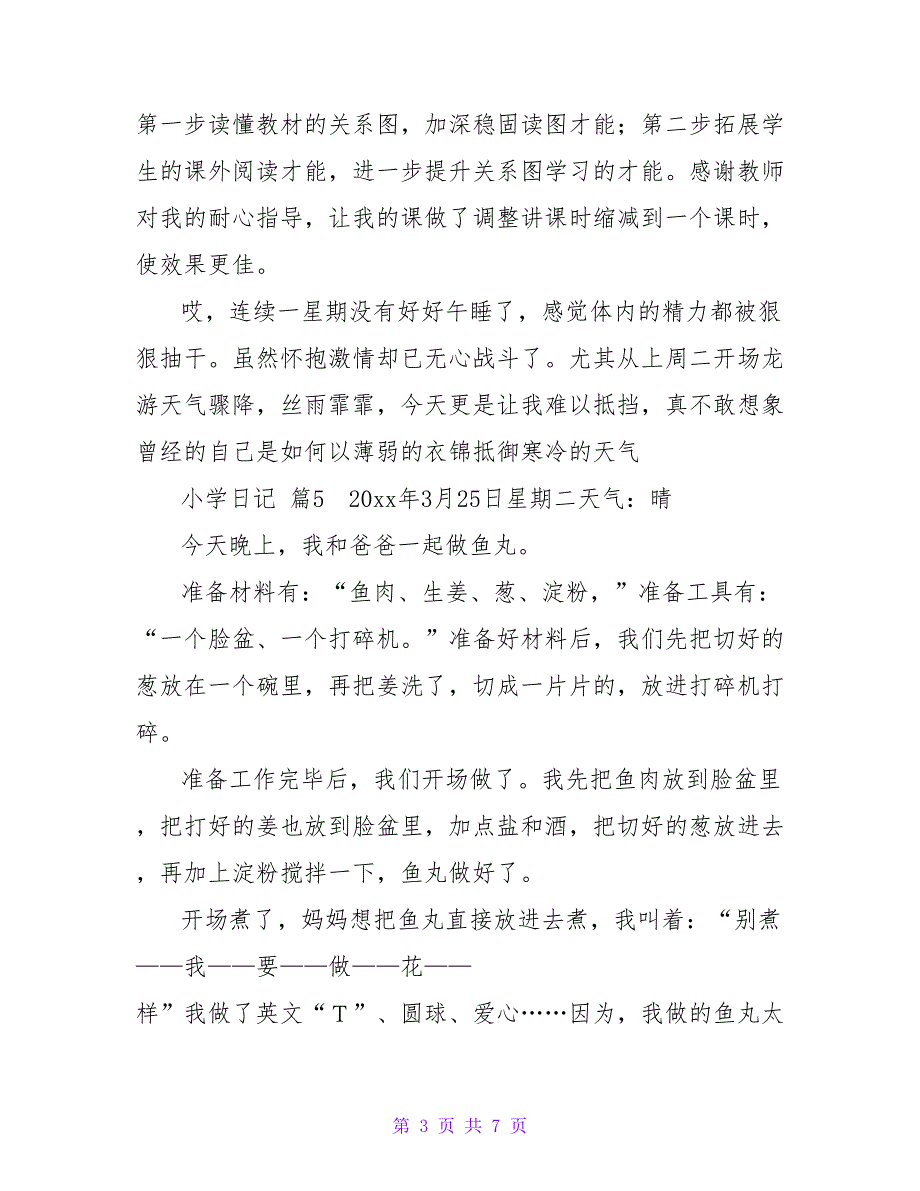 第一步读懂教材的关系图，加深稳固读图才能；第二步拓展学
生的课外阅读才能，进一步提升关系图学习的才能。感谢教师
对我的耐心指导，让我的课做了调整讲课时缩减到一个课时，
使效果更佳。
哎，连续一星期没有好好午睡了，感觉体内的精力都被狠
狠抽干。虽然怀抱激情却已无心战斗了。尤其从上周二开场龙
游天气骤降，丝雨霏霏，今天更是让我难以抵挡，真不敢想象
曾经的自己是如何以薄弱的衣锦抵御寒冷的天气
小学日记 篇5　20xx年3月25日星期二天气：晴
今天晚上，我和爸爸一起做鱼丸。
准备材料有：“鱼肉、生姜、葱、淀粉，”准备工具有：
“一个脸盆、一个打碎机。”准备好材料后，我们先把切好的
葱放在一个碗里，再把姜洗了，切成一片片的，放进打碎机打
碎。
准备工作完毕后，我们开场做了。我先把鱼肉放到脸盆里
，把打好的姜也放到脸盆里，加点盐和酒，把切好的葱放进去
，再加上淀粉搅拌一下，鱼丸做好了。
开场煮了，妈妈想把鱼丸直接放进去煮，我叫着：“别煮
——我——要——做——花——
样”我做了英文“T”、圆球、爱心……因为，我做的鱼丸太
第 3 页 共 7 页